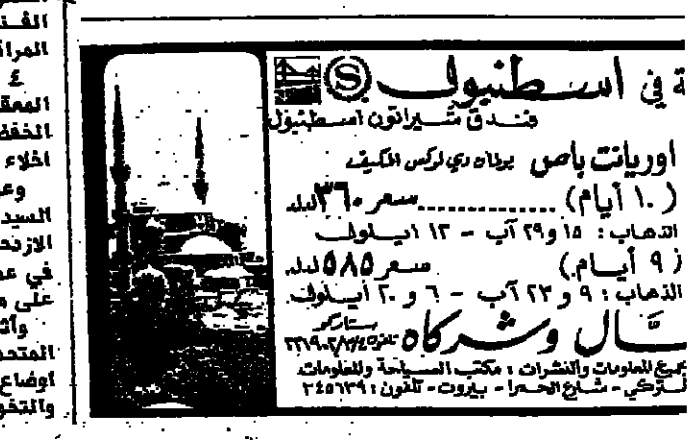 ة في اسطنبول
فندق شيراتون اسطنبول
اوريانت باص برمان دي لوكس المكيف
(١٠ أيام) ................ سعر ٣٦٠ ل.ل.
الذهاب: ١٥ و ٢٩ آب - ١٢ ايلول
(٩ أيام) سعر ٥٨٥ ل.ل.
الذهاب: ٩ و ٢٣ آب - ٦ و ٢٠ أيلول
ـال وشركاه
ستاركو
لجميع المعلومات والنشرات: مكتب السياحة والمعلومات
التركي - شارع الحمرا - بيروت - تلفون: ٣٤٥٦٣٩
المراف
٤
المعق
اخلاء
وع
السيد
في ع
على م
المتحد
اوضاع
والتخو